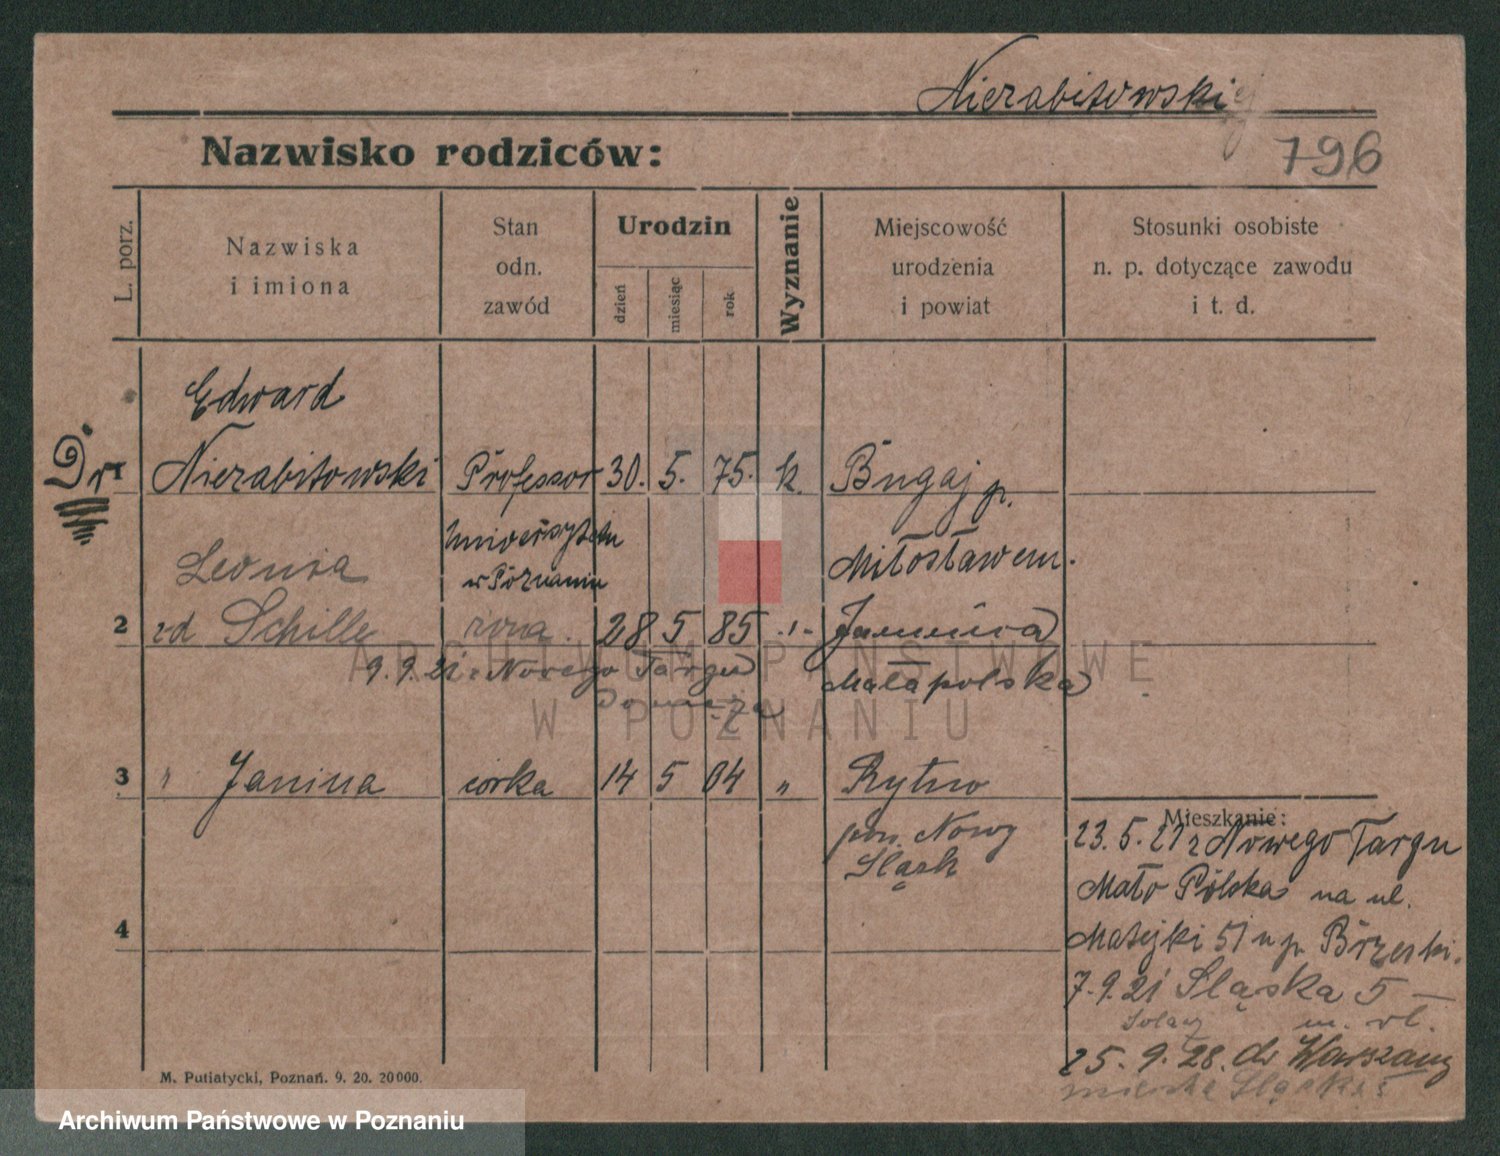 Nierabitowski
Nazwisko rodziców:
796
L. porz.
Nazwiska
i imiona
Stan
odn.
zawód
Urodzin
dzień
miesiąc
rok
Wyznanie
Miejscowość
urodzenia
i powiat
Stosunki osobiste
n. p. dotyczące zawodu
i t. d.
Edward
Dr. 1 Nierabitowski Professor 30. 5. 75. k. Bugaj p.
Uniwersytetu
w Poznaniu
Miłosławem.
Leonia
2 zd Schille żona. 28 5 85 -„-
9.9.21 z Nowego Targu
Małapolska
do męża
3 " Janina córka 14 5 04 " Rytro
pow. Nowy
Sląsk
4
Mieszkanie:
23. 5. 21 z Nowego Targu
Mało Polska na ul.
Matejki 51 u p. Brzeski.
7.9.21 Sląska 5 —
Solacz m. wł.
25. 9. 28. do Warszawy
mieszka Sląska 5
M. Putiatycki, Poznań. 9. 20. 20000.
ARCHIWUM PAŃSTWOWE
W POZNANIU
Archiwum Państwowe w Poznaniu